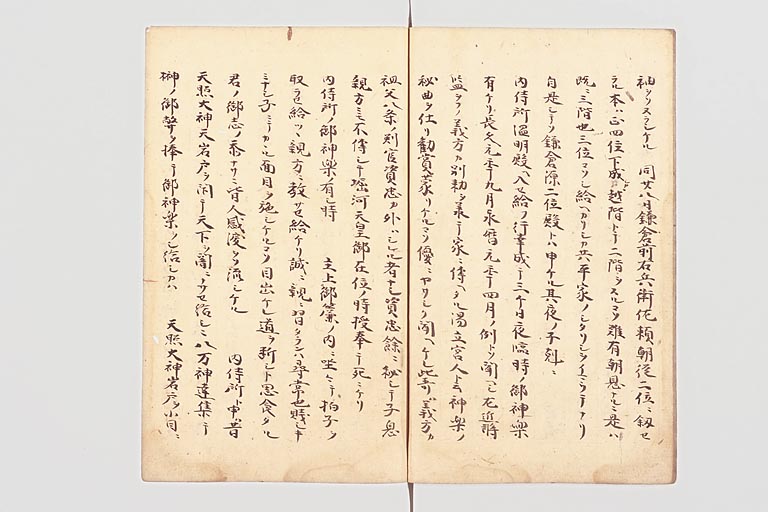 袖ヲソヌラシケル 同廿八日鎌倉前右兵衛佐頼朝従二位ニ叙セ
ラル本ハ正四位下成シニ越階トテ二階ヲスルコソ難有朝恩ナルニ是ハ
既ニ三階也三位コソシ給ヘカリシカ共平家ノシタリシヲイミテナリ
自是シテソ鎌倉源二位殿トハ申ケル其夜ノ子剋ニ
内侍所温明殿ヘ入セ給フ行幸成テ三ケ日夜臨時ノ御神楽
有ケリ長久元年九月永暦元年四月ノ例トソ聞ヘシ右近将
監ヲヲノ義方カ別勅ヲ承テ家ニ傳ヘタル湯立宮人ト云神楽ノ
秘曲ヲ仕リ勧賞蒙リケルコソ優ニヤサシク聞ヘケレ此哥ハ義方カ
祖父八条ノ判官資忠カ外ハシレル者ナシ資忠餘ニ秘シテ子息
親方ニモ不傳シテ堀河天皇御在位ノ時授奉テ死ニケリ
内侍所ノ御神楽ノ有シ時 主上御簾ノ内ニ坐シテ拍子ヲ
取ラセ給ツヽ親方ニ教サセ給ケリ誠ニ親ニ習タランハ尋常也賎シキ
ミナシ子ニテカヽル面目ヲ施シケルコソ目出ケレ道ヲ断シト思食タル
君ノ御志ノ忝ナサニ皆人感涙ヲソ流シケル 内侍所申昔
天照大神天岩戸ヲ閇テ天下ヲ闇ニナサセ給シニ八万神達集テ
榊ノ御幣ヲ捧テ御神楽ヲシ給シカハ 天照大神岩戸ヲ小目ニ